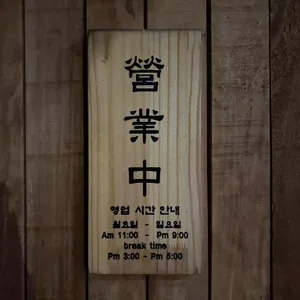 營業中
영업 시간 안내
월요일 - 일요일
Am 11:00 - Pm 9:00
break time
Pm 3:00 - Pm 5:00